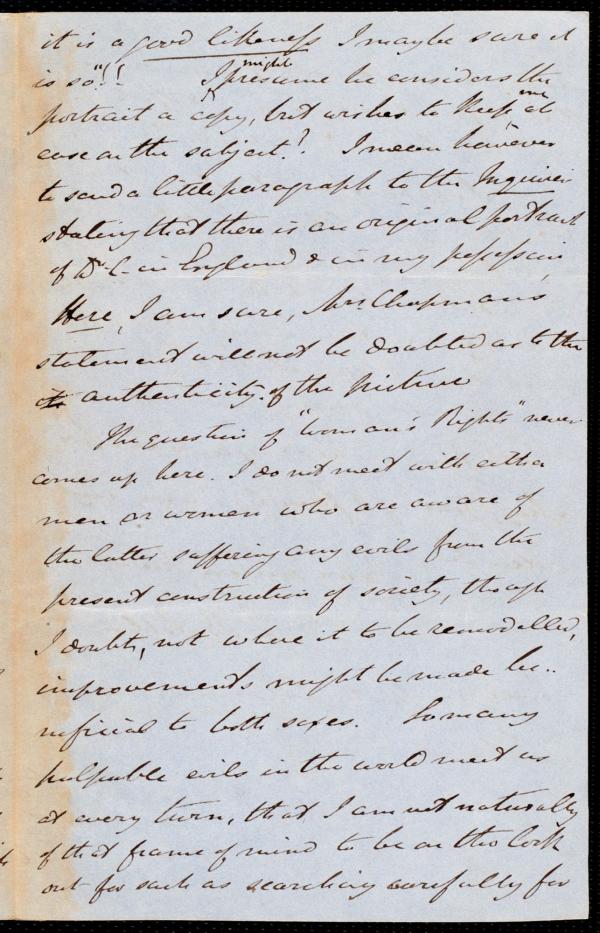 it is a good likeness I may be sure it
is so"!! I might presume he considers the
portrait a copy, but wishes to keep me at
ease on the subject! I mean however
to send a little paragraph to the Inquirer
stating that there is an original portrait
of Dr. C- in England & in my possession
Here, I am sure, Mrs. Chapman's
statement will not be doubted as to the
authenticity of the picture
The question of "Woman's Rights" never
comes up here. I do not meet with either
men or women who are aware of
the latter suffering any evils from the
present construction of society, though
I doubt, not where it to be remodelled,
improvements might be made be..
neficial to both sexes. So many
palpable evils in the world meet us
at every turn, that I am not naturally
of that frame of mind to be on the look
out for such as searching carefully for